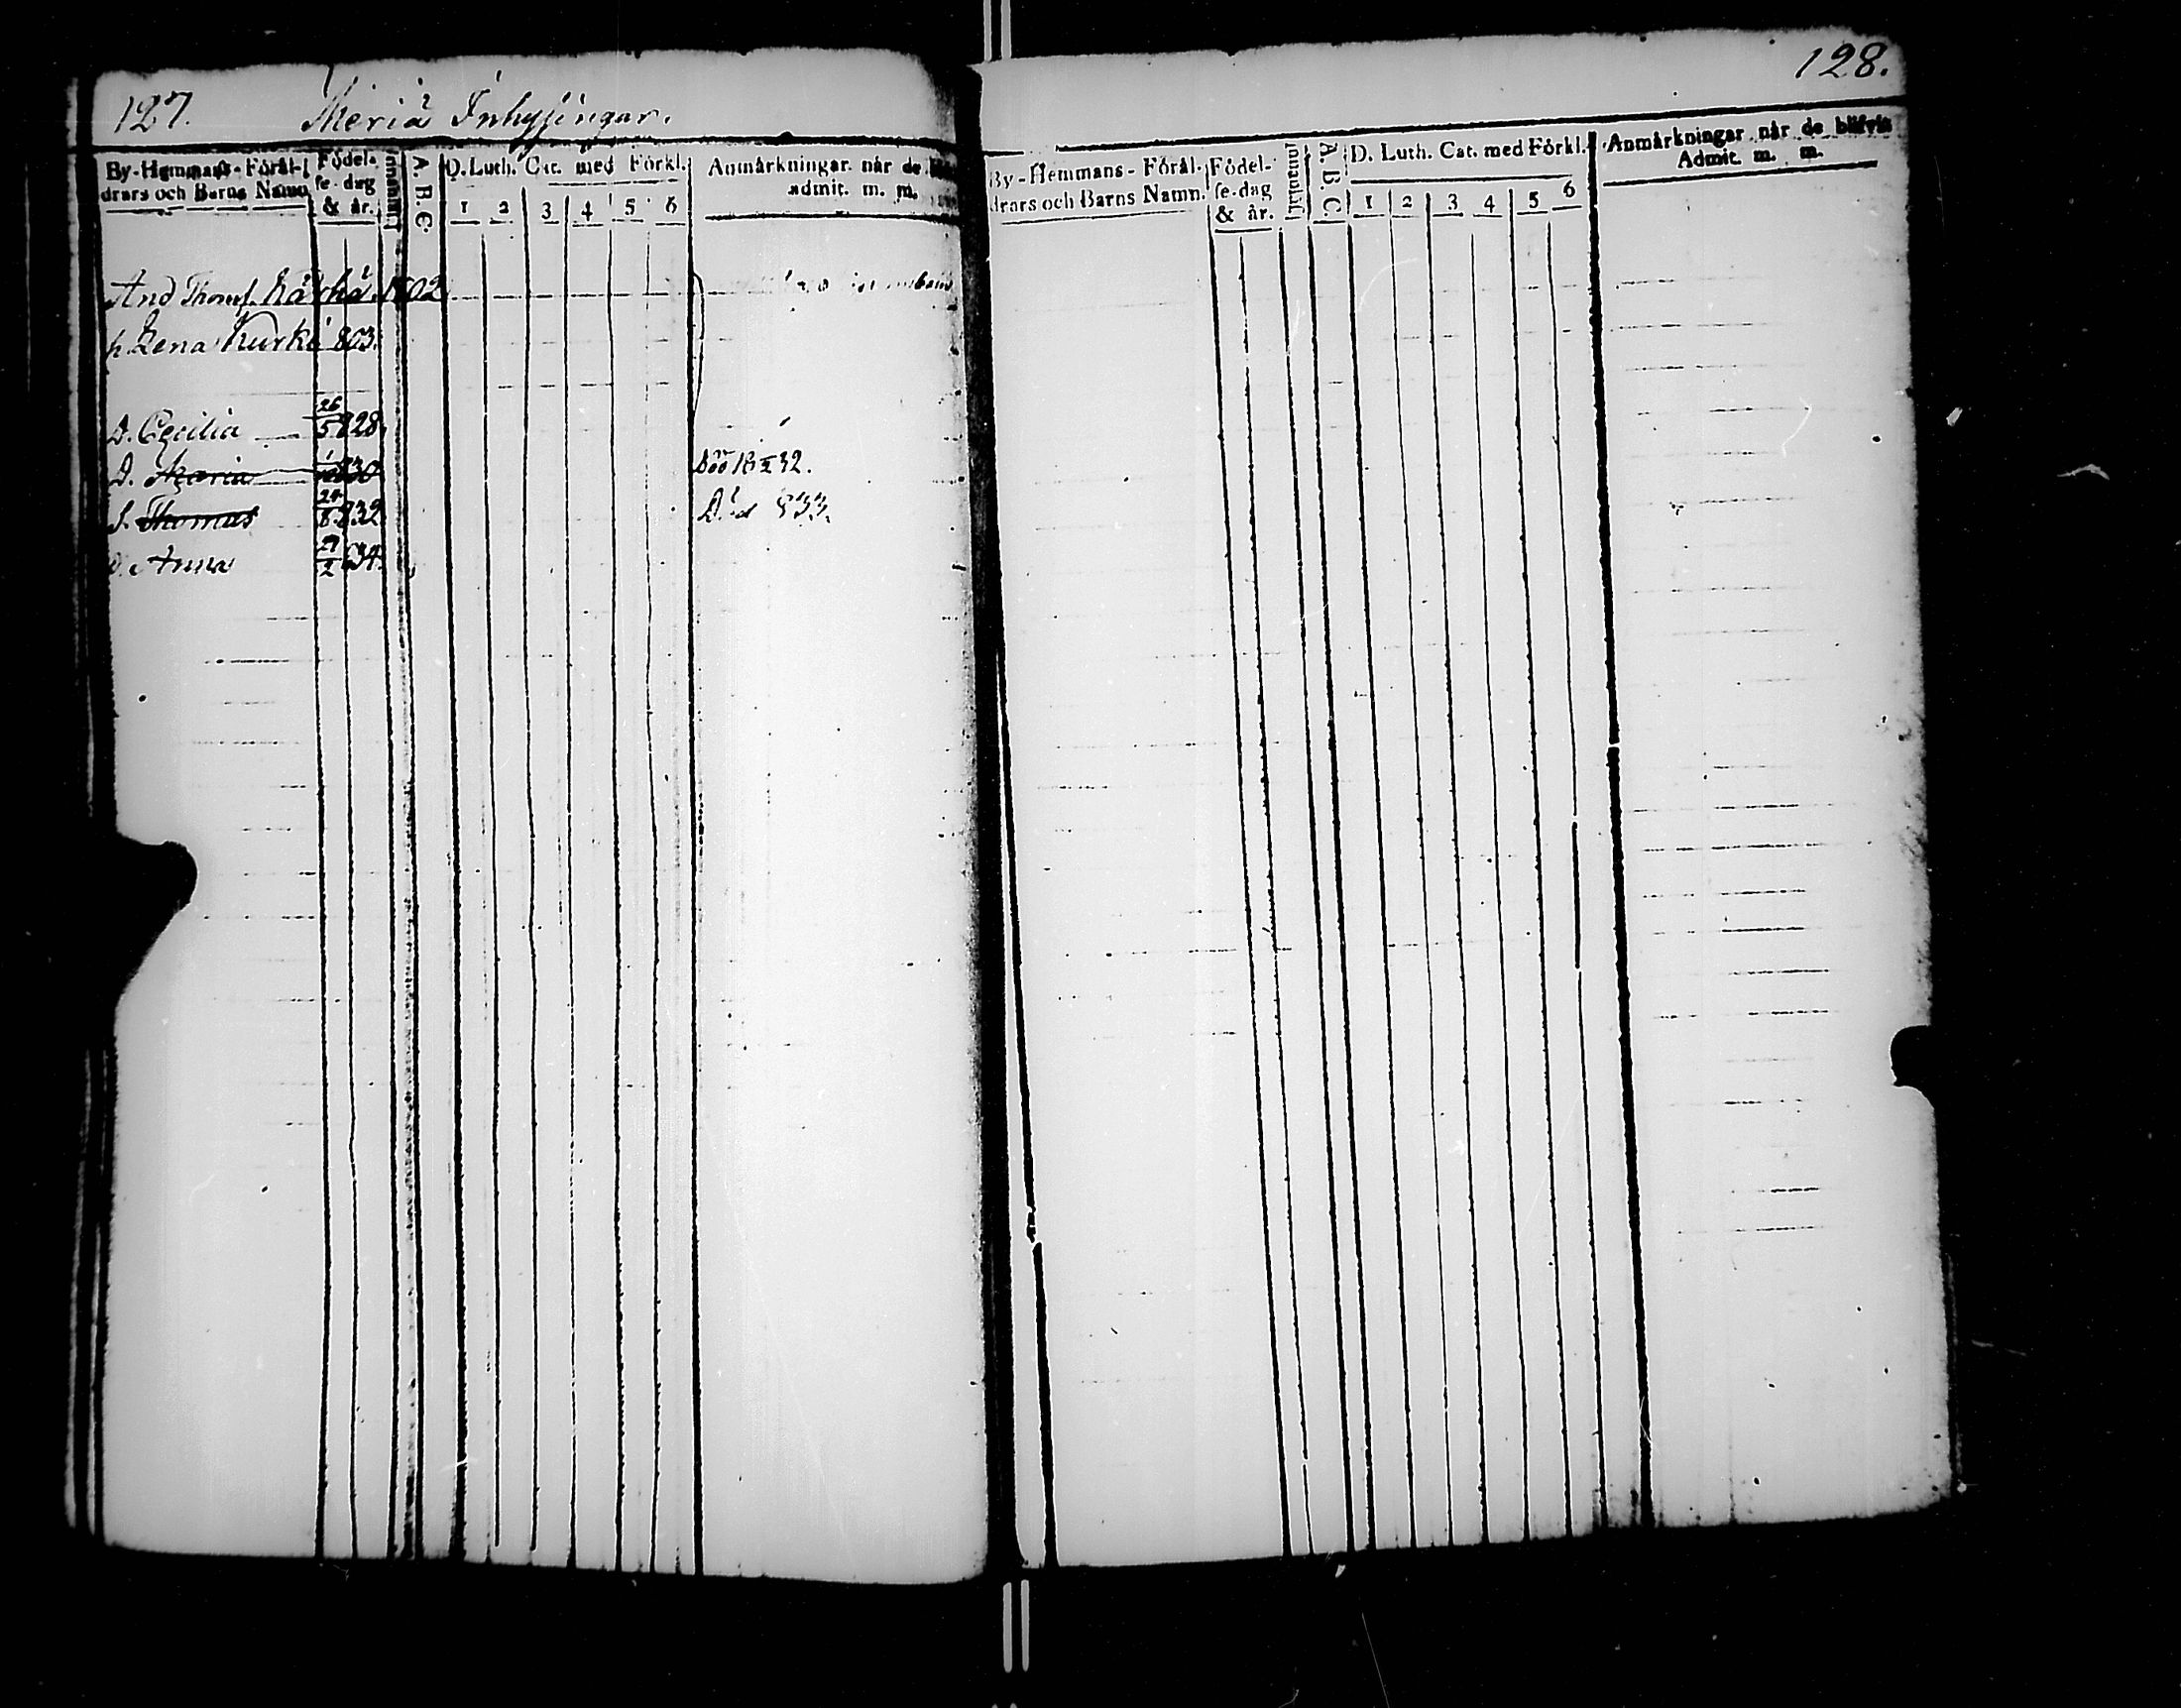 127. Meriä Inhysingar.
By-Hemmans-Föräl-
drars och Barns Namn
Födel-
se-dag
& år.
Innanläs.
A. B. C.
D. Luth. Cat. med Förkl.
1 2 3 4 5 6
Anmärkningar når de
admit. m. m.
And Thomſ. Kärkä 1802
h. Lena Kurki 803.
D. Cecilia 26/5 828.
D. Maria 830 Död 18 32.
S. Thomas 24/8 832 Död 833.
D. Anna 27/2 834.
128.
By-Hemmans-Föräl-
drars och Barns Namn.
Födel-
se-dag
& år.
Innanläs.
A. B. C.
D. Luth. Cat. med Förkl.
1 2 3 4 5 6
Anmärkningar når de blifvit
Admit. m. m.